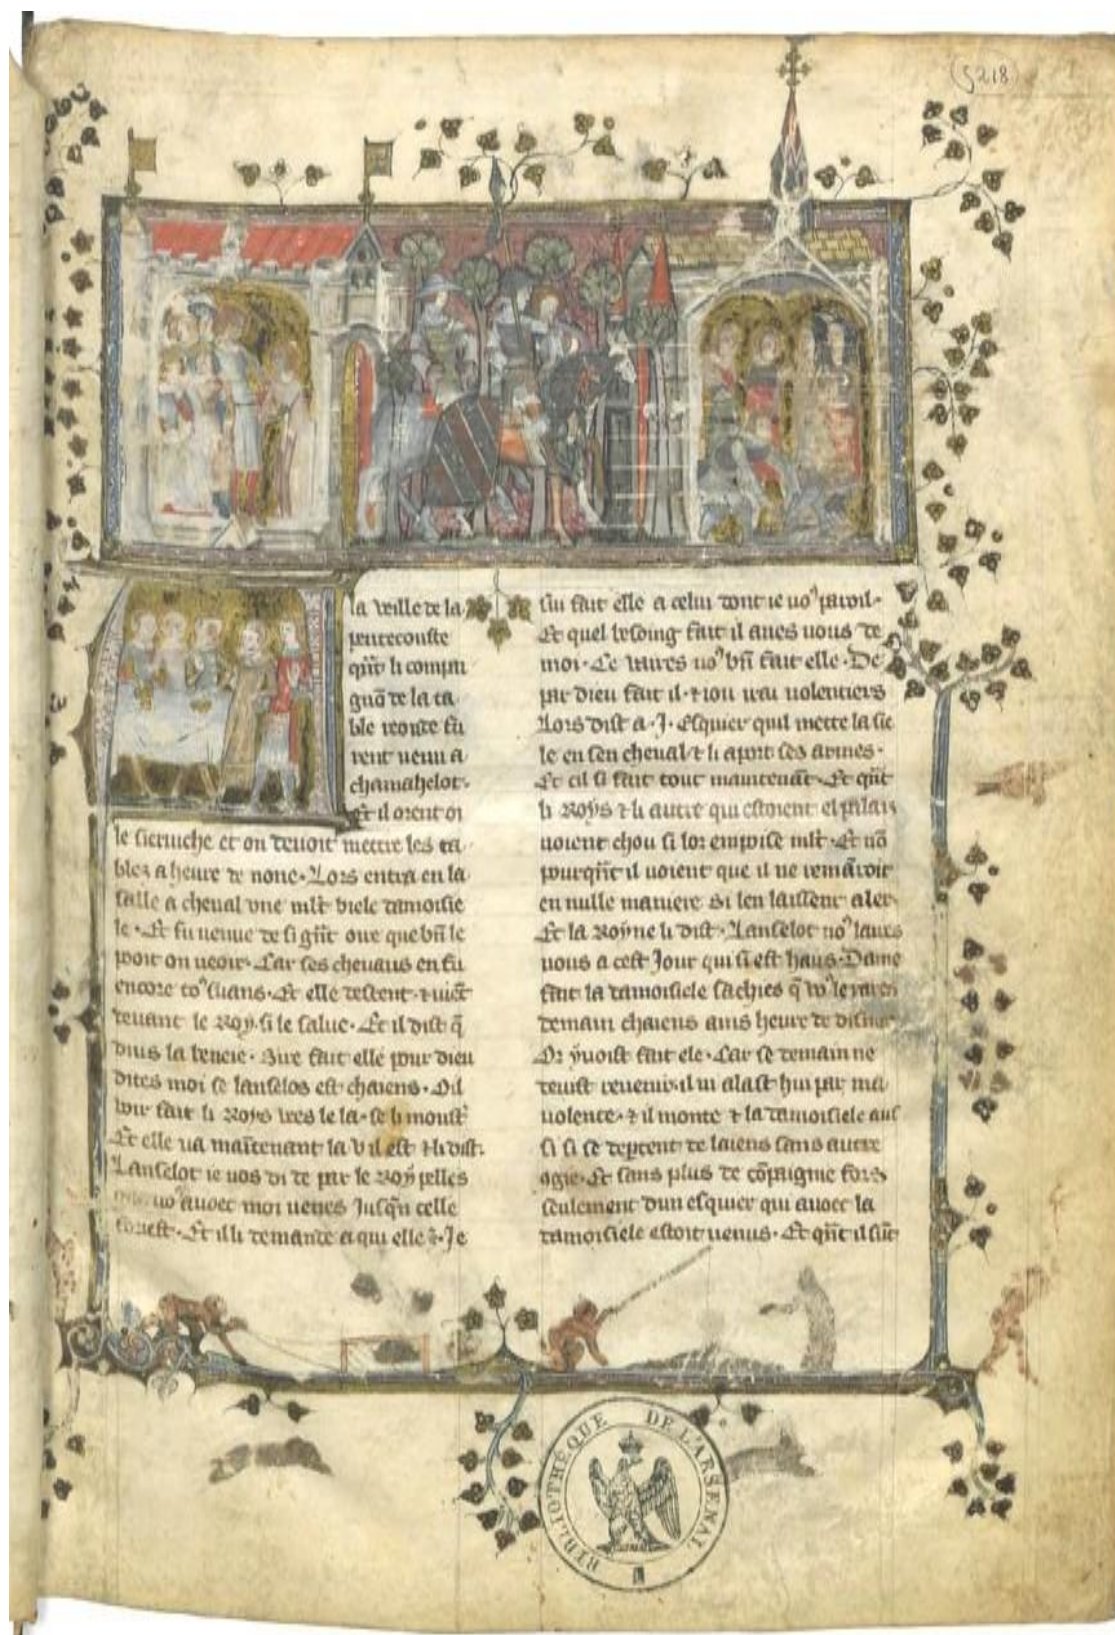 5218
A la veille de la
pentecouste
qn̄t li compai
gnō de la ta
ble reonde fu
rent venu a
chamahelot·
Et il orent oi
le seruiche et on deuoit mettre les ta
bles a heure de none· Lors entra en la
salle a cheual vne mlt̄ biele damoisie
le· Et fu uenue de si gn̄t oirre que bn̄ le
pooit on ueoir· Car ses cheuaus en fu
encore to⁹ suans· Et elle descent· ⁊ uiēt
deuant le Roy· si le salue· Et il dist q̄
dius la beneie· Sire fait elle pour dieu
dites moi se lanselos est chaiens· Oil
voir fait li Roys vees le la· se li moustr̄
Et elle ua maītenant la v il est ⁊ li dist·
Lanselot ie uos di de par le Roy pelles
uo⁹ auoec moi uenes Jusqn̄ celle
forest· Et il li demande a qui elle ē· Je
sui fait elle a celui dont ie uo⁹ paroil·
Et quel besoing fait il aues uous de
moi· Ce verres uo⁹ bn̄ fait elle· De
par dieu fait il· ⁊ iou irai uolentiers
Lors dist a ·J· Esquier quil mette la sie
le en sen cheual ⁊ li aport ses armes·
Et cil si fait tout maintenāt· Et qn̄t
li Roys ⁊ li autre qui estoient el palais
uoient chou si lor empoise mlt̄· Et nō
pourqn̄t il uoient que il ne remāroit
en nulle maniere si len laissent aler·
Et la Royne li dist· Lanselot no⁹ laires
uous a cest Jour qui si est haus· Dame
fait la damoisiele sachies q̄ vo⁹ le rares
demain chaiens ains heure de disner
Or y uoist fait ele· Car se demain ne
deuist reuenir· il ni alast hui par ma
uolente· ⁊ il monte ⁊ la damoisiele aus
si si se deptent de laiens sans autre
ogie· Et sans plus de cōpaignie fors
seulement dun esquier qui auoec la
damoisiele estoit uenus· Et qn̄t il sūt
BIBLIOTHÈQUE DE L'ARSENAL